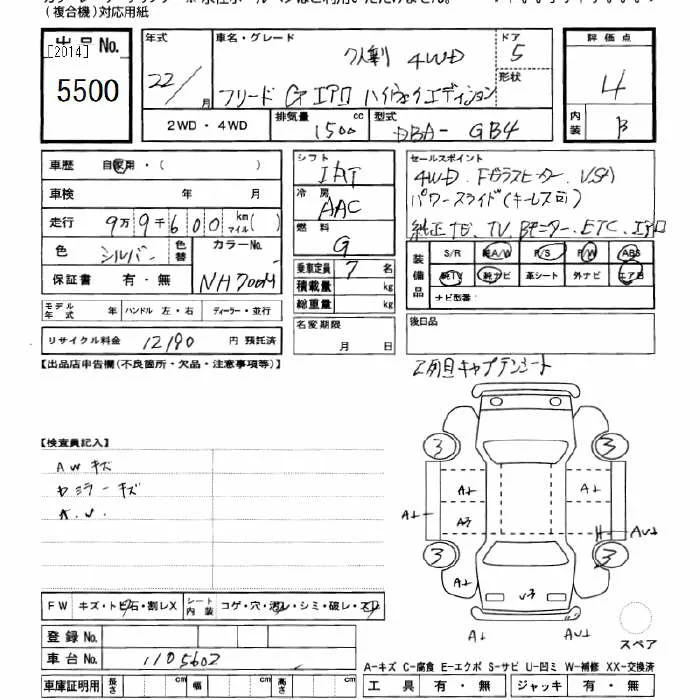 (複合機)対応用紙
出品No.
[2014]
5500
年式
22/
月
車名・グレード
7人乗り 4WD
フリード G エアロ ハイウェイエディション
ドア
5
形状
評価点
4
内装
B
2WD・4WD
排気量
1500
cc
型式
DBA- GB4
車歴 自家用・( )
車検 年 月
走行 9万9千600 km マイル( )
色 シルバー 色替 カラーNo.
保証書 有・無 NH700M
モデル年式 年 ハンドル 左・右 ディーラー・並行
リサイクル料金 12190 円 預託済
シフト
IAT
冷房
AAC
燃料
G
乗車定員 7 名
積載量 kg
総重量 kg
名変期限
月 日
セールスポイント
4WD.Fガラスヒーター.VSA
パワースライド(キーレス可)
純正ナビ.TV.Bモニター.ETC.エアロ
装備品
S/R 純A/W P/S P/W ABS
純TV 純ナビ 革シート 外ナビ エアB
ナビ型番:
後日品
【出品店申告欄(不良箇所・欠品・注意事項等)】
2列目キャプテンシート
【検査員記入】
AWキズ
ドミラーキズ
A.U.
3 3
A↓ A↓
A↓ A3 H AU↓
3 3
A↓ U3
A↓ AU↓
スペア
FW キズ・トビ石・割レX シート内装 コゲ・穴・汚レ・シミ・破レ・スレ
登録No.
車台No. 1105602
車庫証明用 長さ cm 幅 cm 高さ cm
A-キズ C-腐食 E-エクボ S-サビ U-凹ミ W-補修 XX-交換済
工具 有・無 ジャッキ 有・無